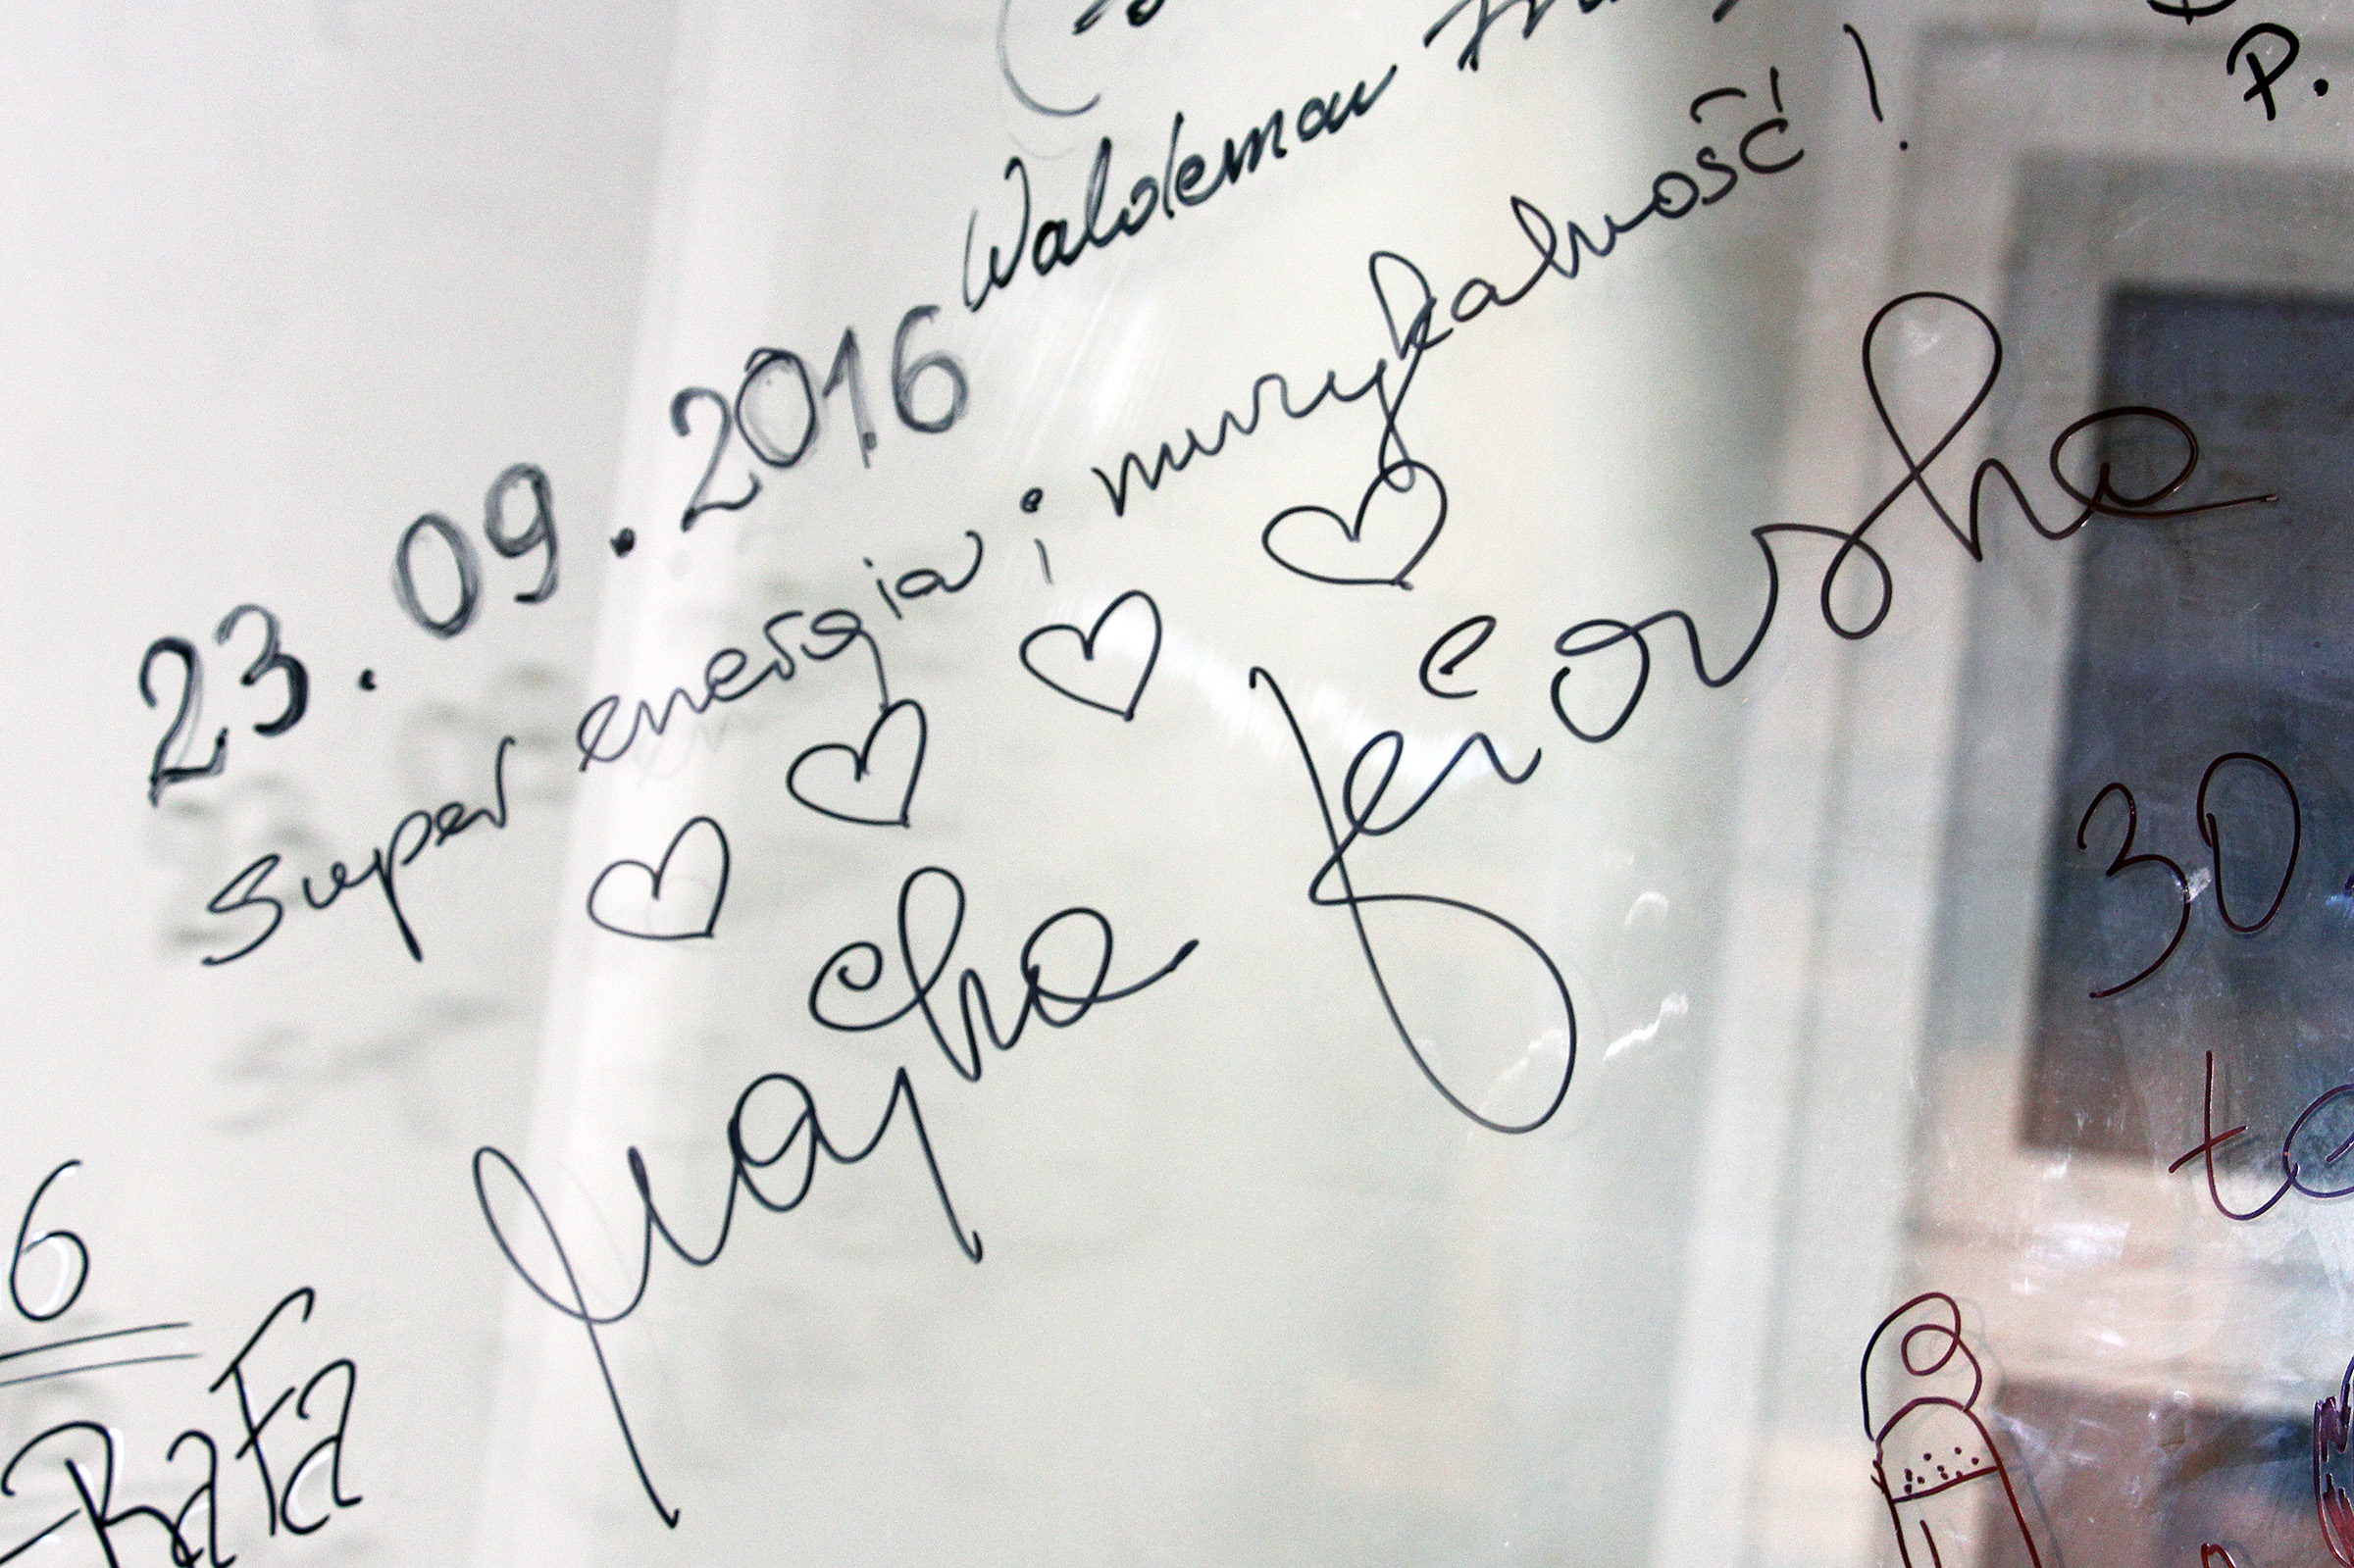 P.
Waldemar
23.09.2016
Super energia i muzykalność!
Majka Jeżowska
30
6
Rafa